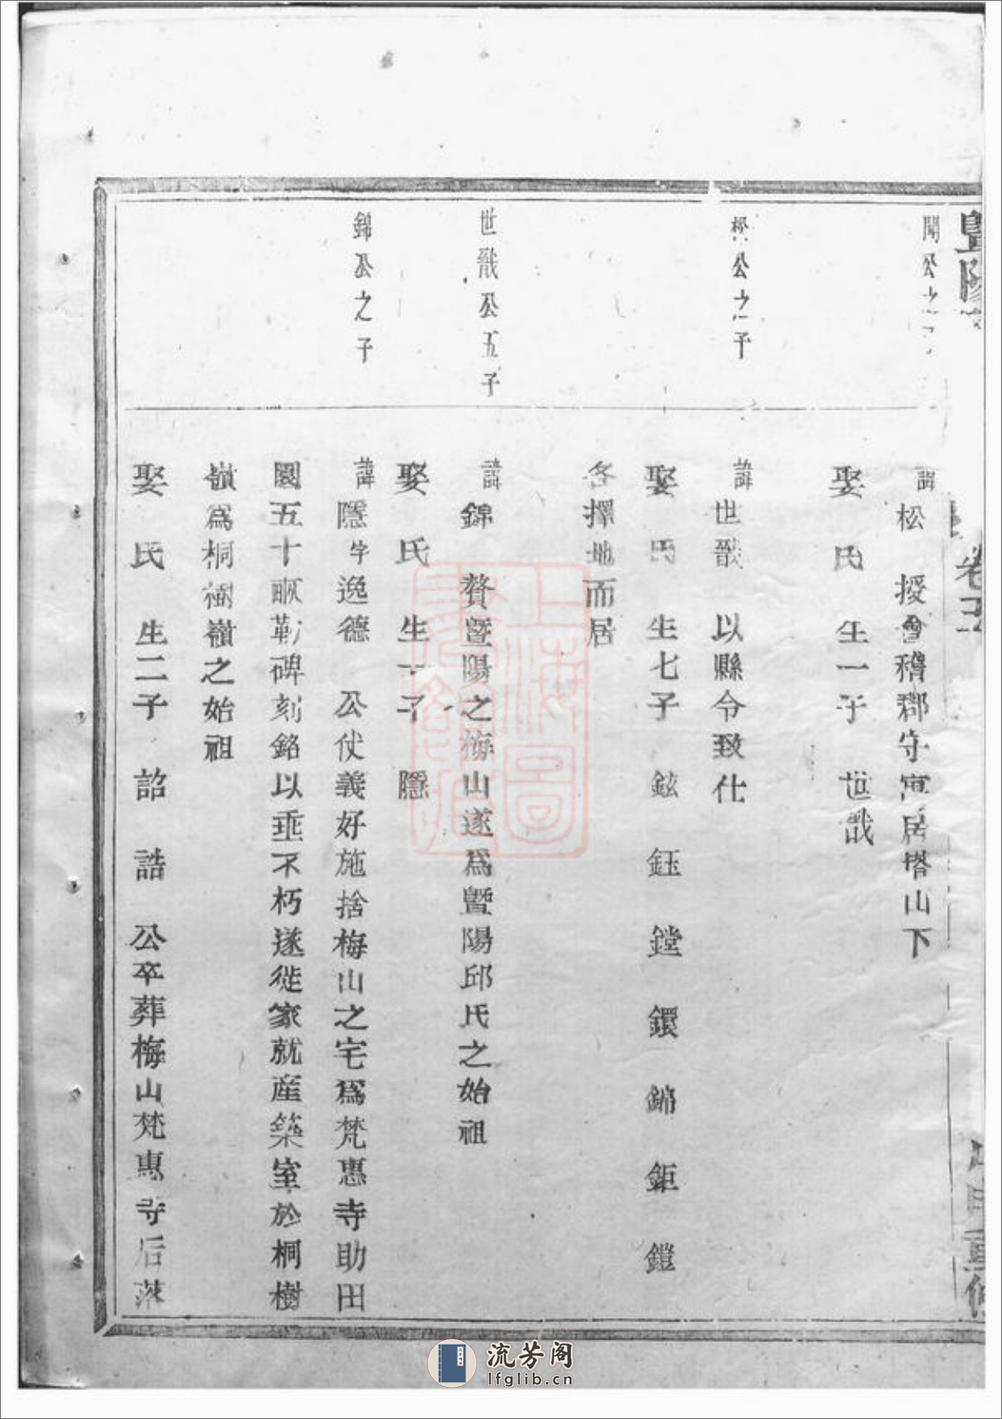 暨陽
卷
聞公之
諱松 授會稽郡守寓居塔山下
娶氏 生一子 世戩
松公之子
諱世戩 以縣令致仕
娶氏 生七子 鉉 鈺 鏜 鐶 錦 鉅 鎧
各擇地而居
世戩公五子
諱錦 贅暨陽之梅山遂爲暨陽邱氏之始祖
娶氏 生一子 隱
錦公之子
諱隱字逸德 公仗義好施捨梅山之宅爲梵惠寺助田
園五十畝勒碑刻銘以垂不朽遂徙家就産築室於桐樹
嶺爲桐樹嶺之始祖
娶氏 生二子 詔 誥 公卒葬梅山梵惠寺后
上海圖書館藏
流芳阁
lfglib.cn